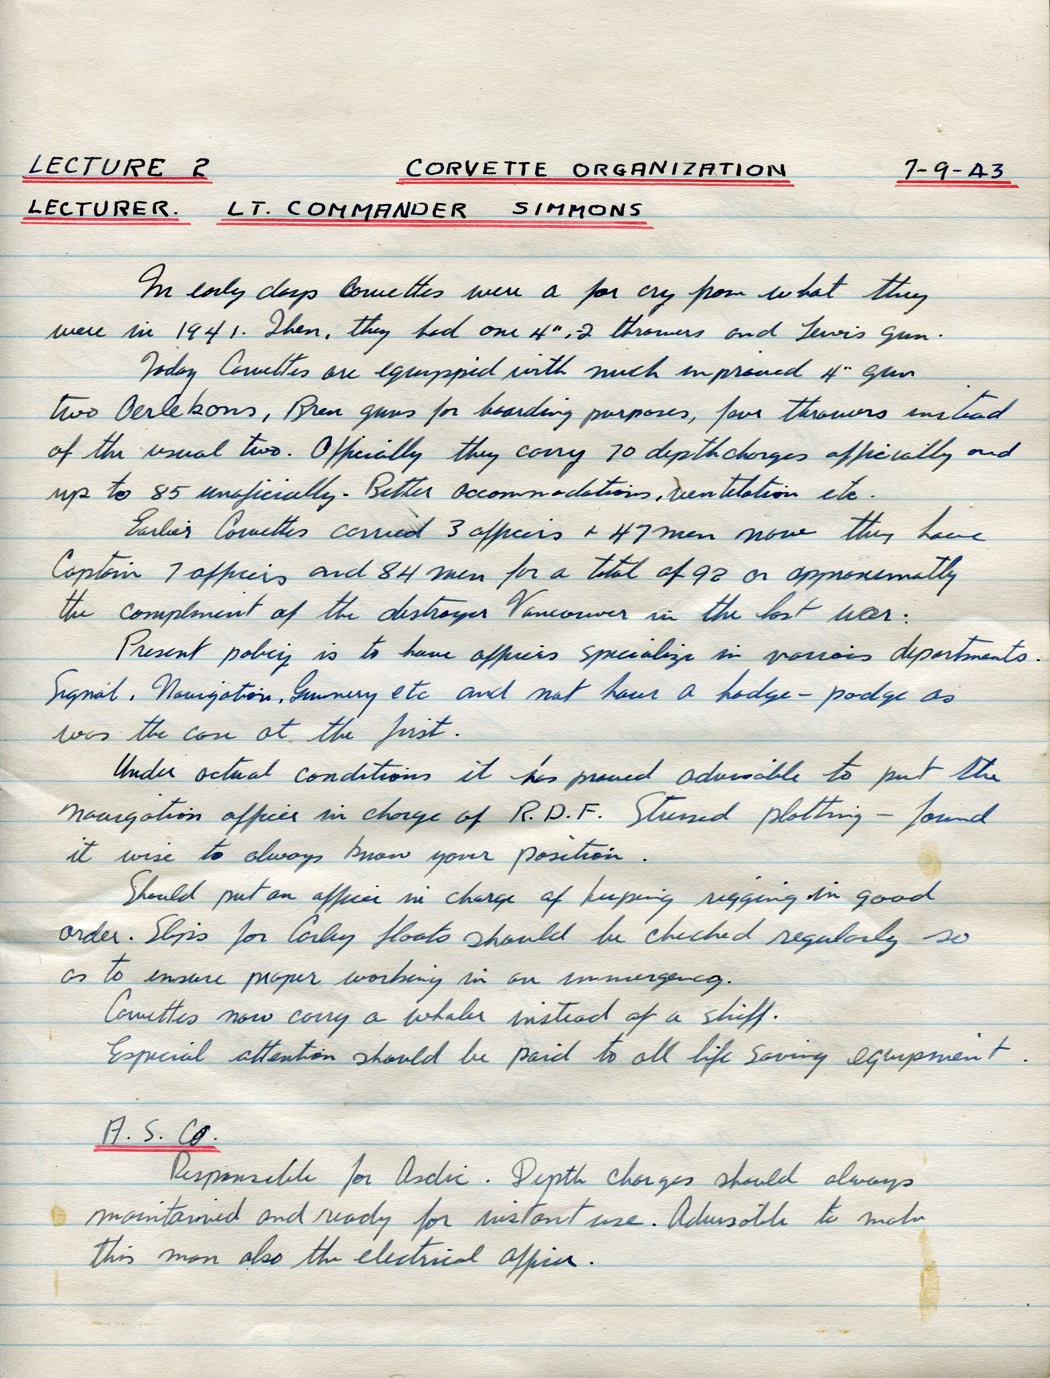 LECTURE 2 CORVETTE ORGANIZATION 7-9-43
LECTURER. LT. COMMANDER SIMMONS
In early days Corvettes were a far cry from what they
were in 1941. Then, they had one 4", 2 throwers and Lewis gun.
Today Corvettes are equipped with much improved 4" gun
two Oerlekons, Bren guns for boarding purposes, four throwers instead
of the usual two. Officially they carry 70 depthcharges officially and
up to 85 unoficially. Better accommodations, ventilation etc.
Earlier Corvettes carried 3 officers + 47 men now they have
Captain 7 officers and 84 men for a total of 92 or approximatly
the complement of the destroyer Vancouver in the last war.
Present policy is to have officers specialize in various departments.
Signal, Navigation, Gunnery etc and not have a hodge-podge as
was the case at the first.
Under actual conditions it has proved advisable to put the
navigation officer in charge of R.D.F. Stressed plotting - found
it wise to always know your position.
Should put an officer in charge of keeping rigging in good
order. Slips for Carley floats should be checked regularly so
as to ensure proper working in an immergency.
Corvettes now carry a whaler instead of a skiff.
Especial attention should be paid to all life saving equipment.
A. S. CO.
Responsible for Asdic. Depth charges should always
maintained and ready for instant use. Advisable to make
this man also the electrical officer.